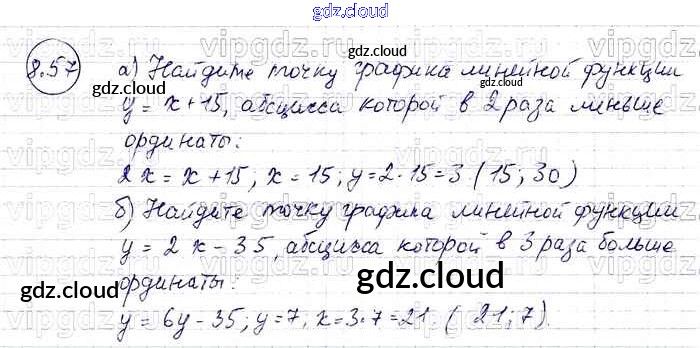 gdz.cloud
8.57
а) Найдите точку графика линейной функции
y = x + 15, абсцисса которой в 2 раза меньше
ординаты:
2x = x + 15; x = 15; y = 2 · 15 = 3 (15; 30)
б) Найдите точку графика линейной функции
y = 2x - 35, абсцисса которой в 3 раза больше
ординаты:
y = 6y - 35; y = 7; x = 3·7 = 21 (21; 7).
gdz.cloud
gdz.cloud
gdz.cloud
gdz.cloud
gdz.cloud